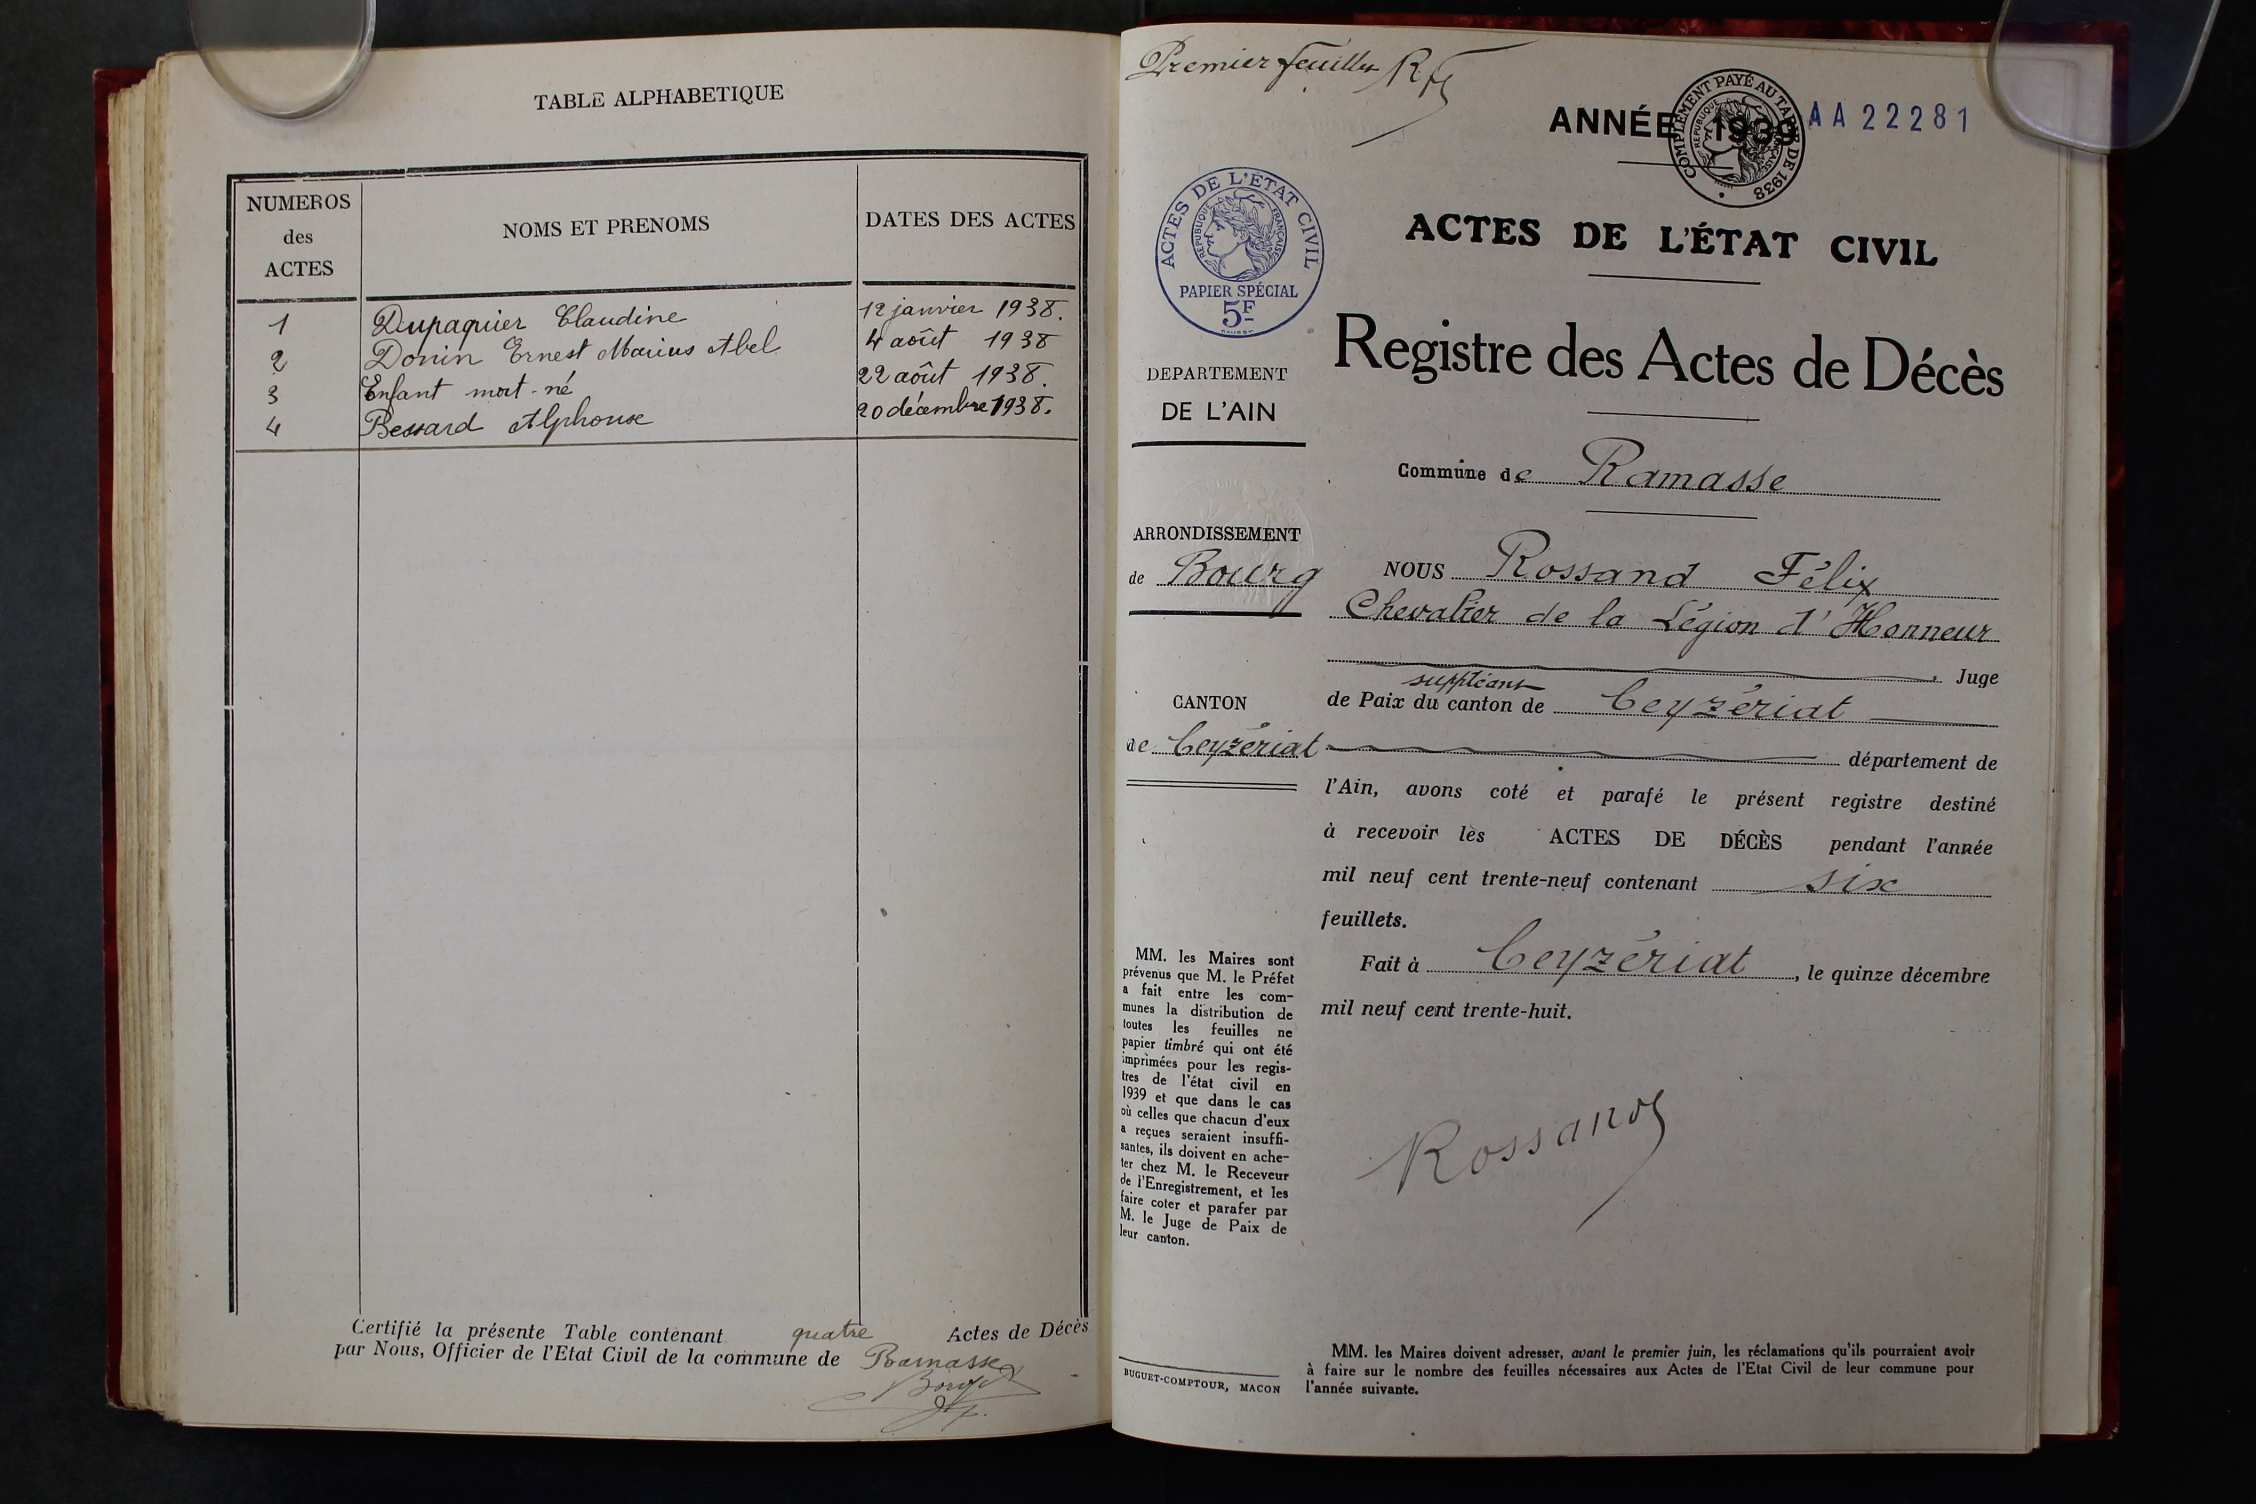 TABLE ALPHABETIQUE
NUMEROS
des
ACTES
NOMS ET PRENOMS
DATES DES ACTES
1 Dupaquier Claudine 12 janvier 1938.
2 Donin Ernest Marius Abel 4 août 1938
3 Enfant mort-né 22 août 1938.
4 Bessard Alphonse 20 décembre 1938.
Certifié la présente Table contenant quatre Actes de Décès
par Nous, Officier de l'Etat Civil de la commune de Ramasse
Premier feuillet
ANNÉE 1939
COMPLÉMENT PAYÉ AU TARIF DE 1938
RÉPUBLIQUE FRANÇAISE
AA 22281
ACTES DE L'ÉTAT CIVIL
RÉPUBLIQUE FRANÇAISE
PAPIER SPÉCIAL
5F
DEPARTEMENT
DE L'AIN
ARRONDISSEMENT
de Bourg
CANTON
de Ceyzériat
MM. les Maires sont
prévenus que M. le Préfet
a fait entre les com-
munes la distribution de
toutes les feuilles ne
papier timbré qui ont été
imprimées pour les regis-
tres de l'état civil en
1939 et que dans le cas
où celles que chacun d'eux
a reçues seraient insuffi-
santes, ils doivent en ache-
ter chez M. le Receveur
de l'Enregistrement, et les
faire coter et parafer par
M. le Juge de Paix de
leur canton.
BUGUET-COMPTOUR, MACON
ACTES DE L'ÉTAT CIVIL
Registre des Actes de Décès
Commune de Ramasse
NOUS Rossand Félix
Chevalier de la Légion d'Honneur
, Juge
suppléant
de Paix du canton de Ceyzériat
département de
l'Ain, avons coté et parafé le présent registre destiné
à recevoir les ACTES DE DÉCÈS pendant l'année
mil neuf cent trente-neuf contenant six
feuillets.
Fait à Ceyzériat, le quinze décembre
mil neuf cent trente-huit.
Rossand
MM. les Maires doivent adresser, avant le premier juin, les réclamations qu'ils pourraient avoir
à faire sur le nombre des feuilles nécessaires aux Actes de l'Etat Civil de leur commune pour
l'année suivante.